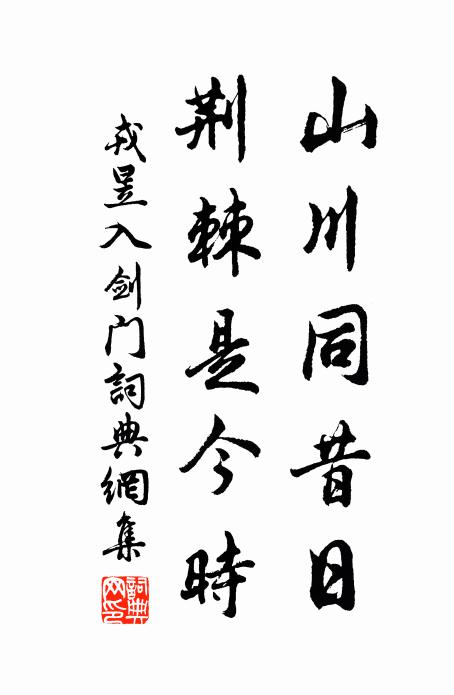 山川同昔日
荆棘是今時
戎昱入剑门詞典網集
詞典
网印